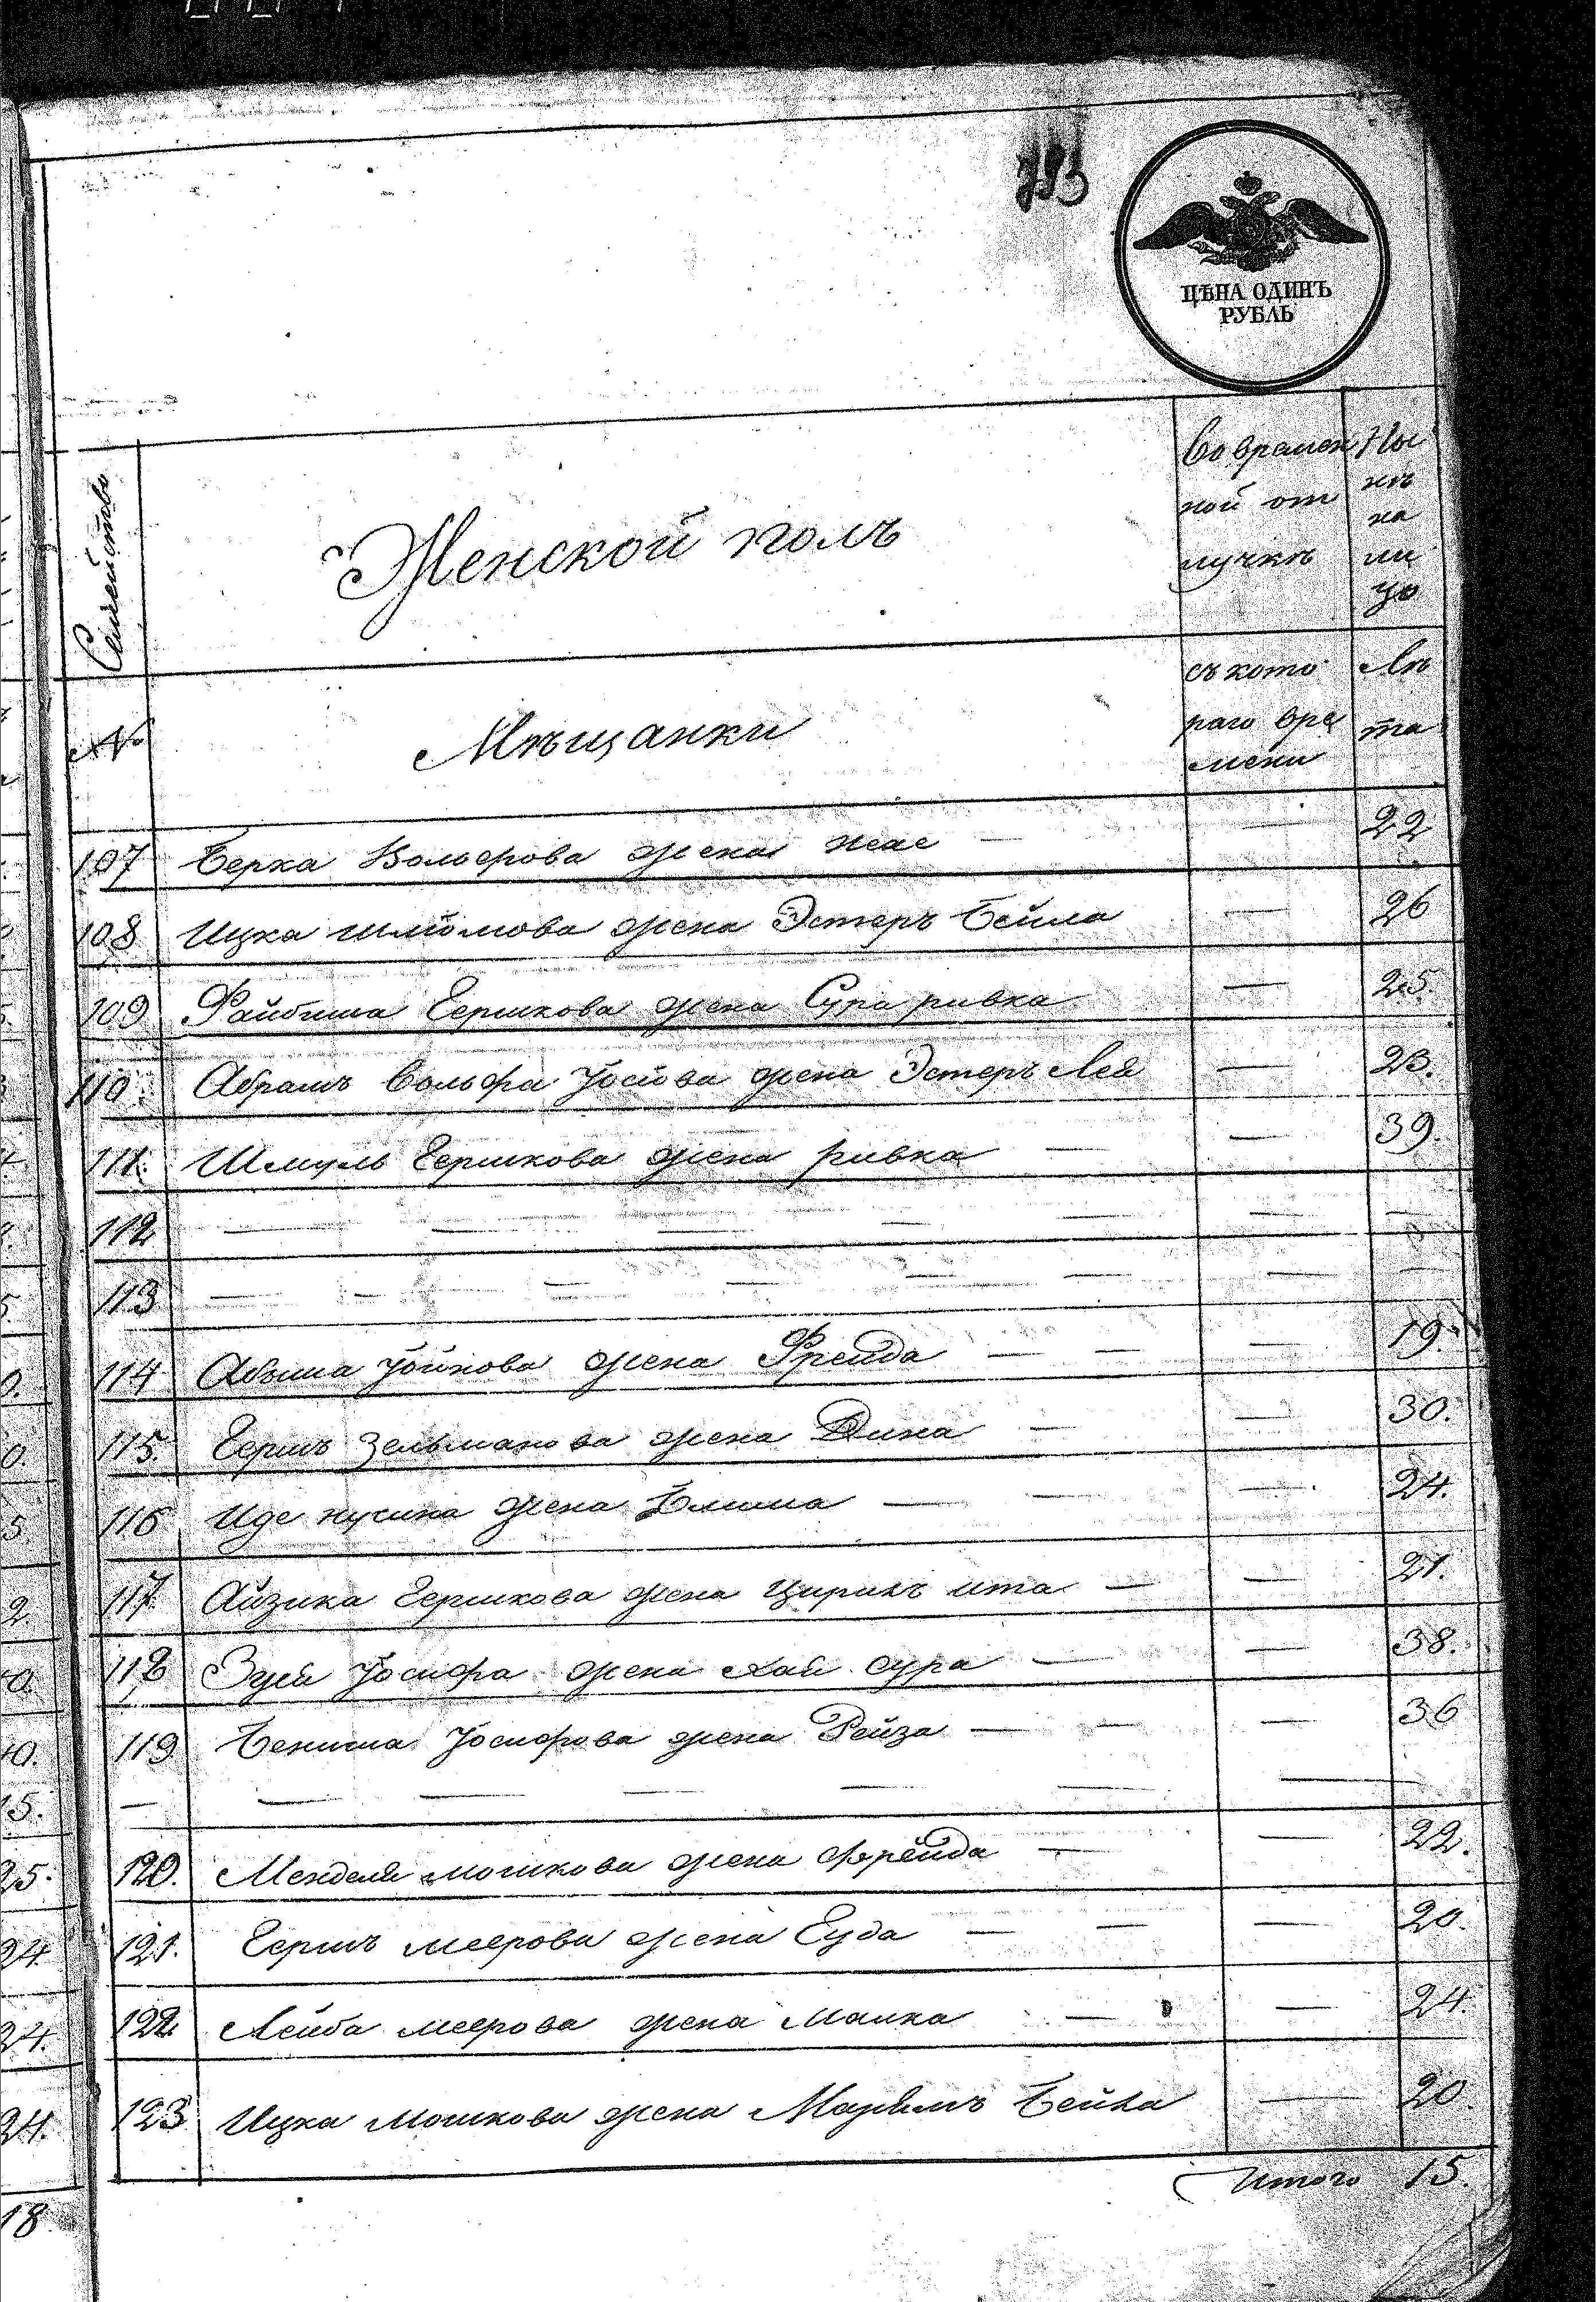 ЦѢНА ОДИНЪ
РУБЛЬ
Семейство
Женской полъ
Во времен
ной от
лучкѣ
Ны
нѣ
на
ли
цо
№
Мѣщанки
съ кото
раго вре
мени
Лѣ
та
107 Берка Вольфова жена — — 22
108 Ицка Шлiомова жена Эстеръ Бейла — 26
109 Файбиша Гершкова жена Сура ривка — 25.
110. Абрамъ Вольфа Іосiова жена Эстеръ Лея — 23.
111. Шмуль Гершкова жена ривка — — 39.
112 — — — — — — —
113 — — — — — — — —
114 Абыша Іойнова жена Фрейда — — — 19.
115. Гершъ Зельманова жена Дина — — 30.
116 Иде нусина жена Блима — — — 24.
117 Айзика Гершкова жена Цирилъ ита — — 21.
118 Зуси Іосифа жена хай сура — — 38.
119 Бениша Іосифова жена Рейза — — — 36
— — — — — — —
120. Менделя мошкова жена фрейда — — 22.
121. Гершъ меерова жена Гуда — — — 20.
122. Лейба меерова жена Малка — — 24
123 Ицка Мошкова жена Марьямъ Бейла — 20.
Итого 15.